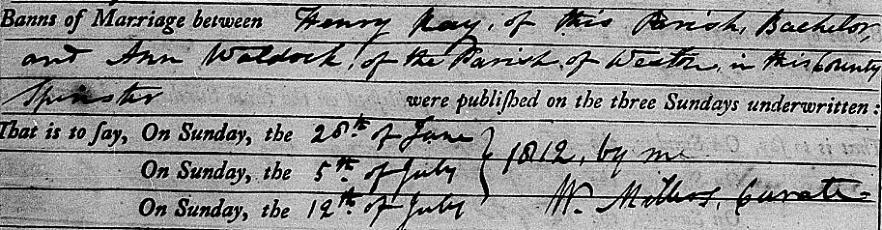 Banns of Marriage between Henry Kay, of this Parish, Bachelor,
and Ann Waldock, of the Parish of Weston, in this County
Spinster were publiſhed on the three Sundays underwritten:
That is to ſay, On Sunday, the 28th. of June
On Sunday, the 5th. of July 1812, by me
On Sunday, the 12th. of July W. Curate